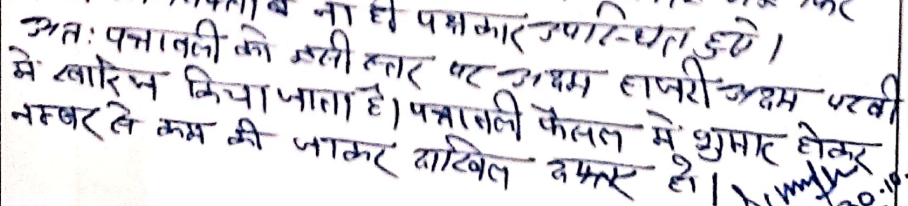 ना ही पक्षकार उपस्थित हुये।
अतः पत्रावली को इसी स्तर पर अदम हाजरी अदम परवी
में खारिज किया जाता है। पत्रावली फैसल में शुमार होकर
नम्बर से कम की जाकर दाखिल दफ्तर हो।